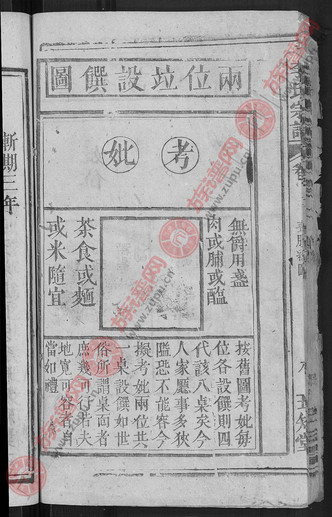 兩位竝設饌圖
考
妣
無爵用盞
肉或脯或醢
茶食或麵
或米隨宜
按舊圖考妣每
位各設饌則四
代該八桌矣今
人家廳事多狹
隘恐不能容今
擬考妣兩位共
一桌設饌如世
俗所謂桌面者
庶幾可行若夫
地寬可容者自
當如禮
族譜网
www.zupu.cn